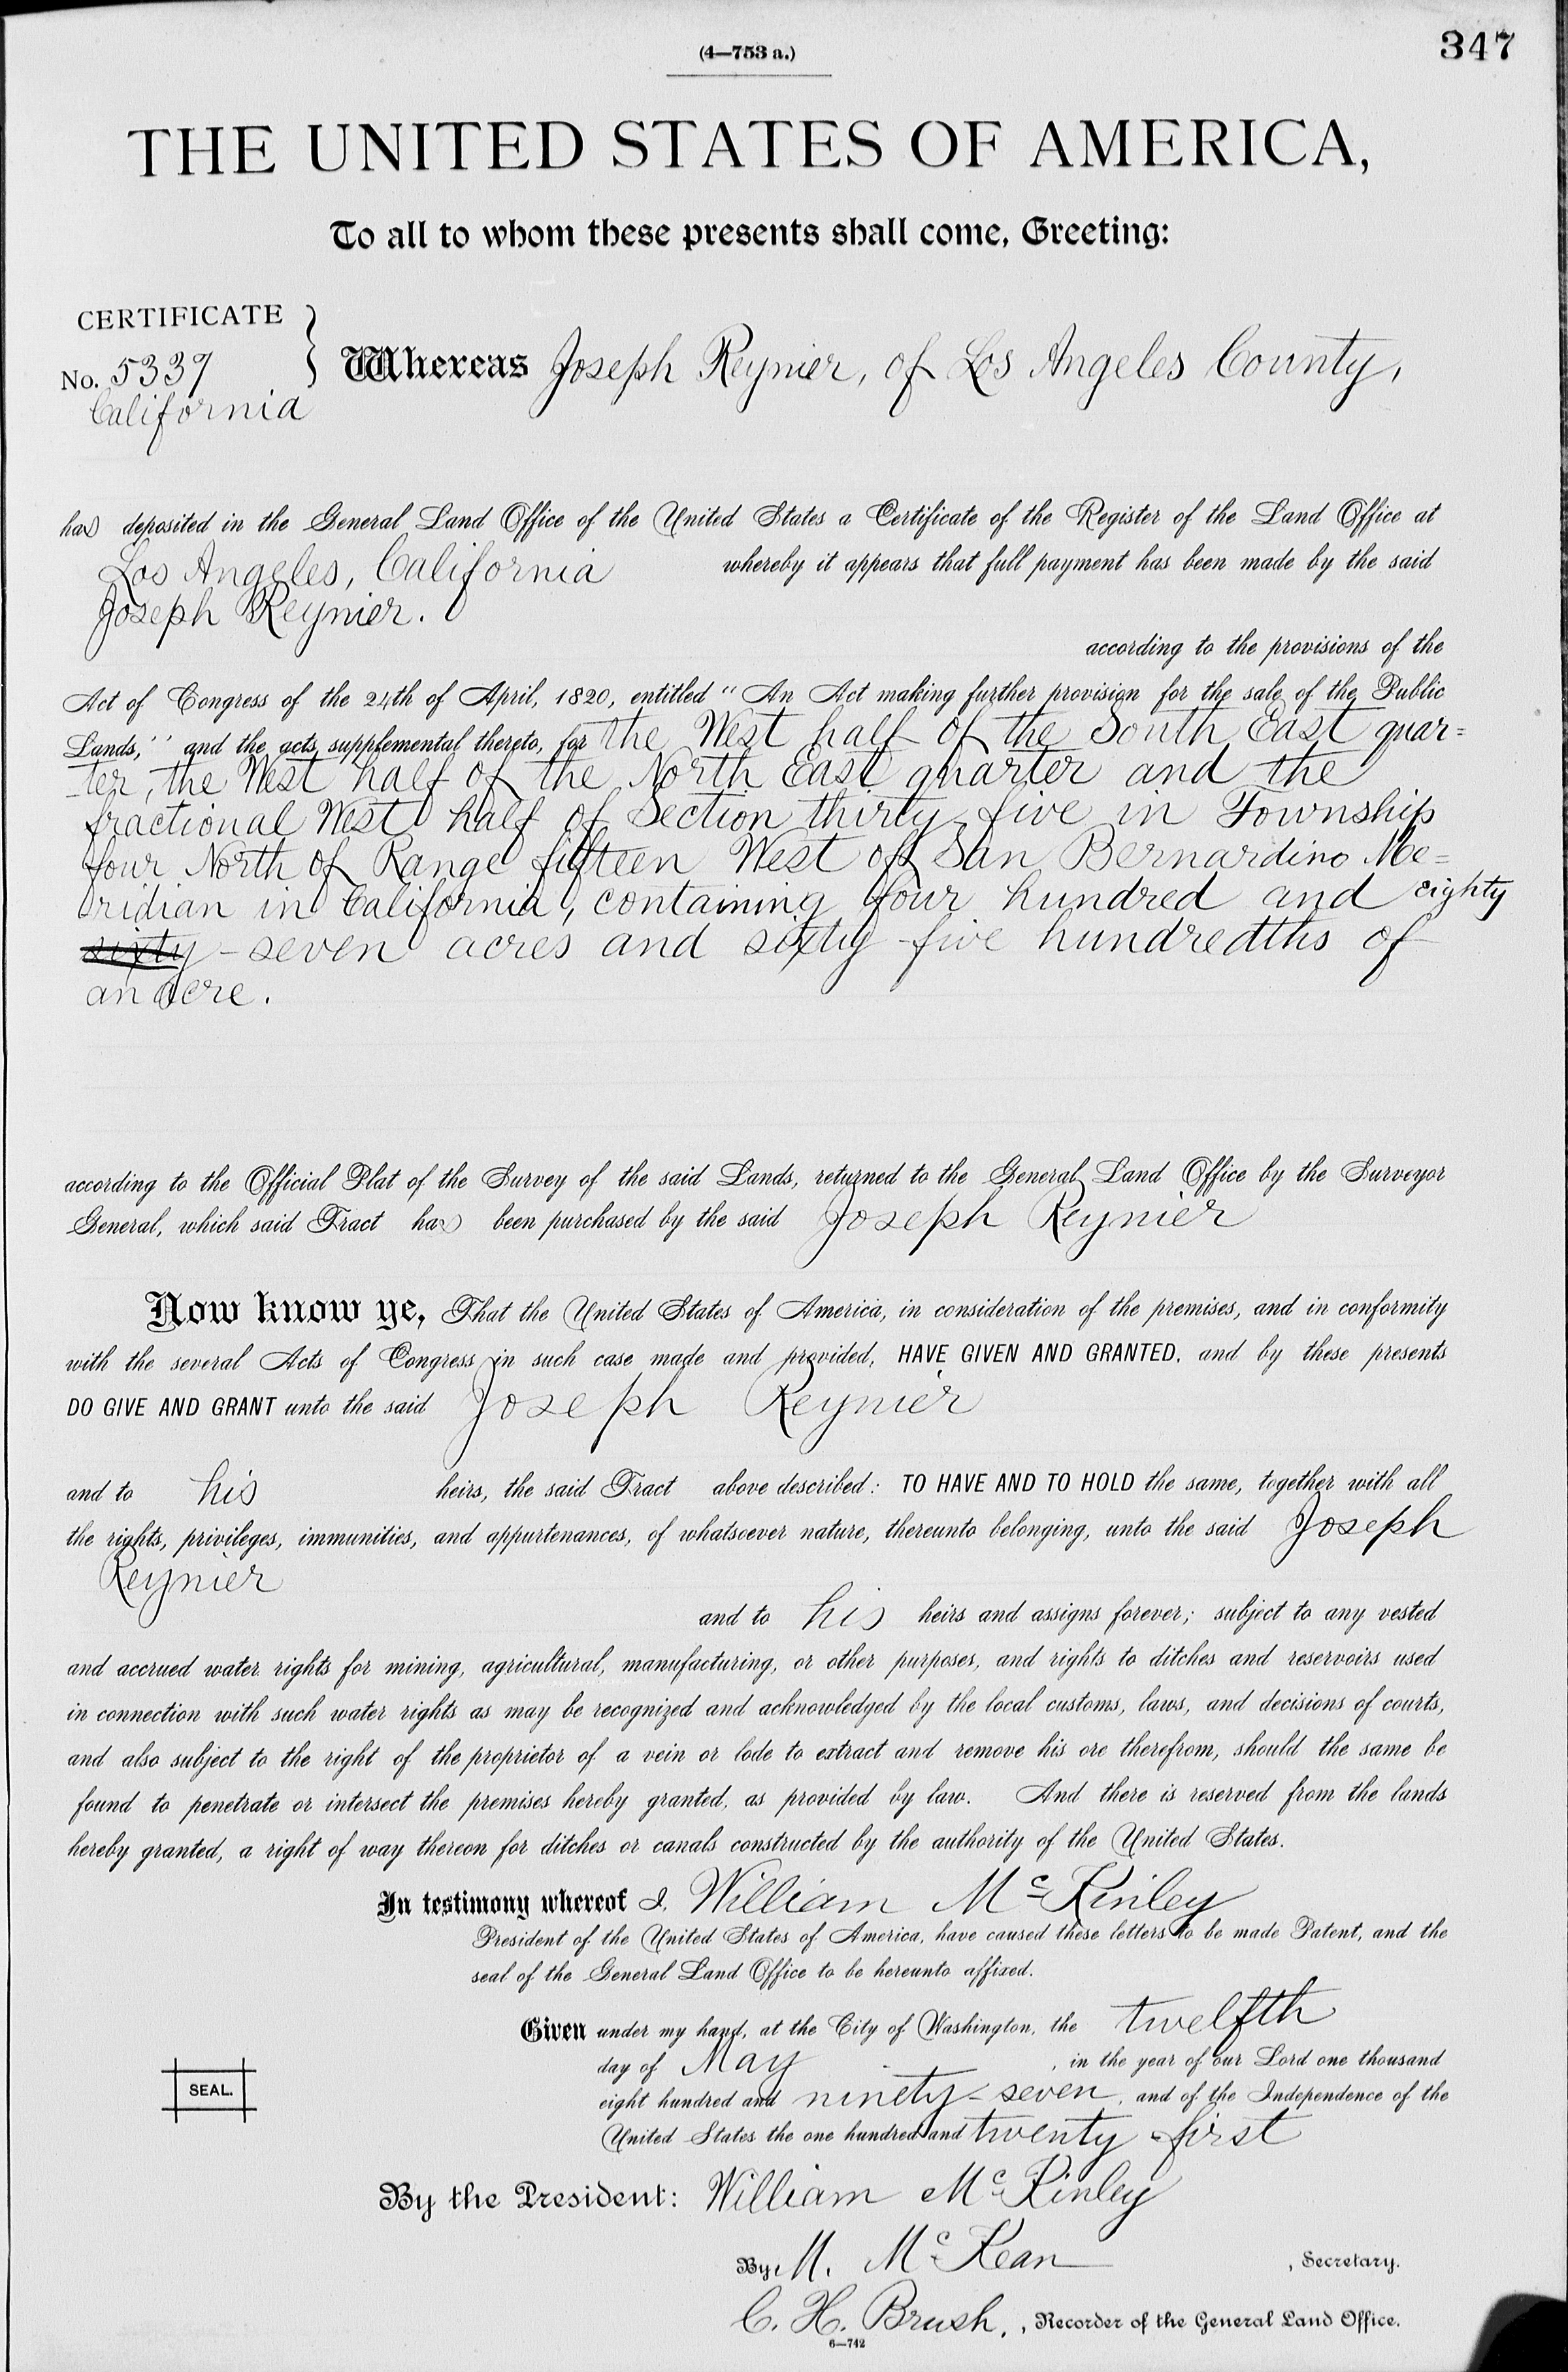 (4—753 a.)
347
THE UNITED STATES OF AMERICA,
To all to whom these presents shall come, Greeting:
CERTIFICATE
No. 5339
California
Whereas Joseph Reynier, of Los Angeles County,
has deposited in the General Land Office of the United States a Certificate of the Register of the Land Office at
Los Angeles, California whereby it appears that full payment has been made by the said
Joseph Reynier.
according to the provisions of the
Act of Congress of the 24th of April, 1820, entitled "An Act making further provision for the sale of the Public
Lands," and the acts supplemental thereto, for the West half of the South East quar=
-ter, the West half of the North East quarter and the
fractional West half of Section thirty-five in Township
four North of Range fifteen West of San Bernardino Me=
ridian in California, containing four hundred and eighty
sixty-seven acres and sixty-five hundredths of
an acre.
according to the Official Plat of the Survey of the said Lands, returned to the General Land Office by the Surveyor
General, which said Tract has been purchased by the said Joseph Reynier
Now know ye, That the United States of America, in consideration of the premises, and in conformity
with the several Acts of Congress in such case made and provided, HAVE GIVEN AND GRANTED, and by these presents
DO GIVE AND GRANT unto the said Joseph Reynier
and to his heirs, the said Tract above described: TO HAVE AND TO HOLD the same, together with all
the rights, privileges, immunities, and appurtenances, of whatsoever nature, thereunto belonging, unto the said Joseph
Reynier
and to his heirs and assigns forever; subject to any vested
and accrued water rights for mining, agricultural, manufacturing, or other purposes, and rights to ditches and reservoirs used
in connection with such water rights as may be recognized and acknowledged by the local customs, laws, and decisions of courts,
and also subject to the right of the proprietor of a vein or lode to extract and remove his ore therefrom, should the same be
found to penetrate or intersect the premises hereby granted, as provided by law. And there is reserved from the lands
hereby granted, a right of way thereon for ditches or canals constructed by the authority of the United States.
In testimony whereof I, William McKinley
President of the United States of America, have caused these letters to be made Patent, and the
seal of the General Land Office to be hereunto affixed.
Given under my hand, at the City of Washington, the twelfth
day of May, in the year of our Lord one thousand
eight hundred and ninety-seven, and of the Independence of the
United States the one hundred and twenty-first
SEAL.
By the President: William McKinley
By M. McKean, Secretary.
C. H. Brush, , Recorder of the General Land Office.
6—742